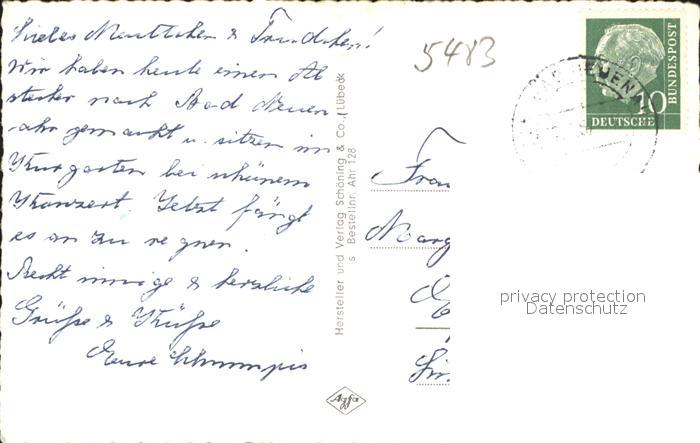 Liebes Muttchen & Trudchen!
Wir haben heute einen Ab
stecher nach Bad Neuen-
ahr gemacht u. sitzen im
Kurgarten bei schönem
Konzert. Jetzt fängt
es an zu regnen.
Recht innige & herzliche
Grüße & Küsse
Eure
5483
BAD NEUENA
10
DEUTSCHE
BUNDESPOST
Hersteller und Verlag Schöning & Co., Lübeck
s Bestellnr. Ahr 128
Frau
Marg
privacy protection
Datenschutz
Agfa